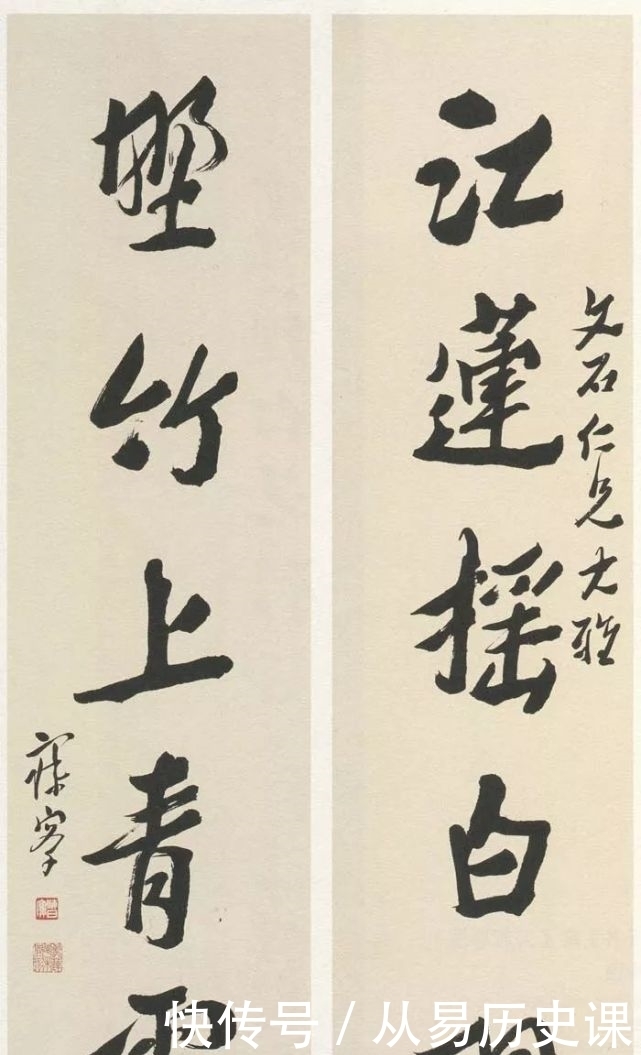 文石仁兄大雅
江蓮摇白
野竹上青
寐叟
快传号 / 从易历史课